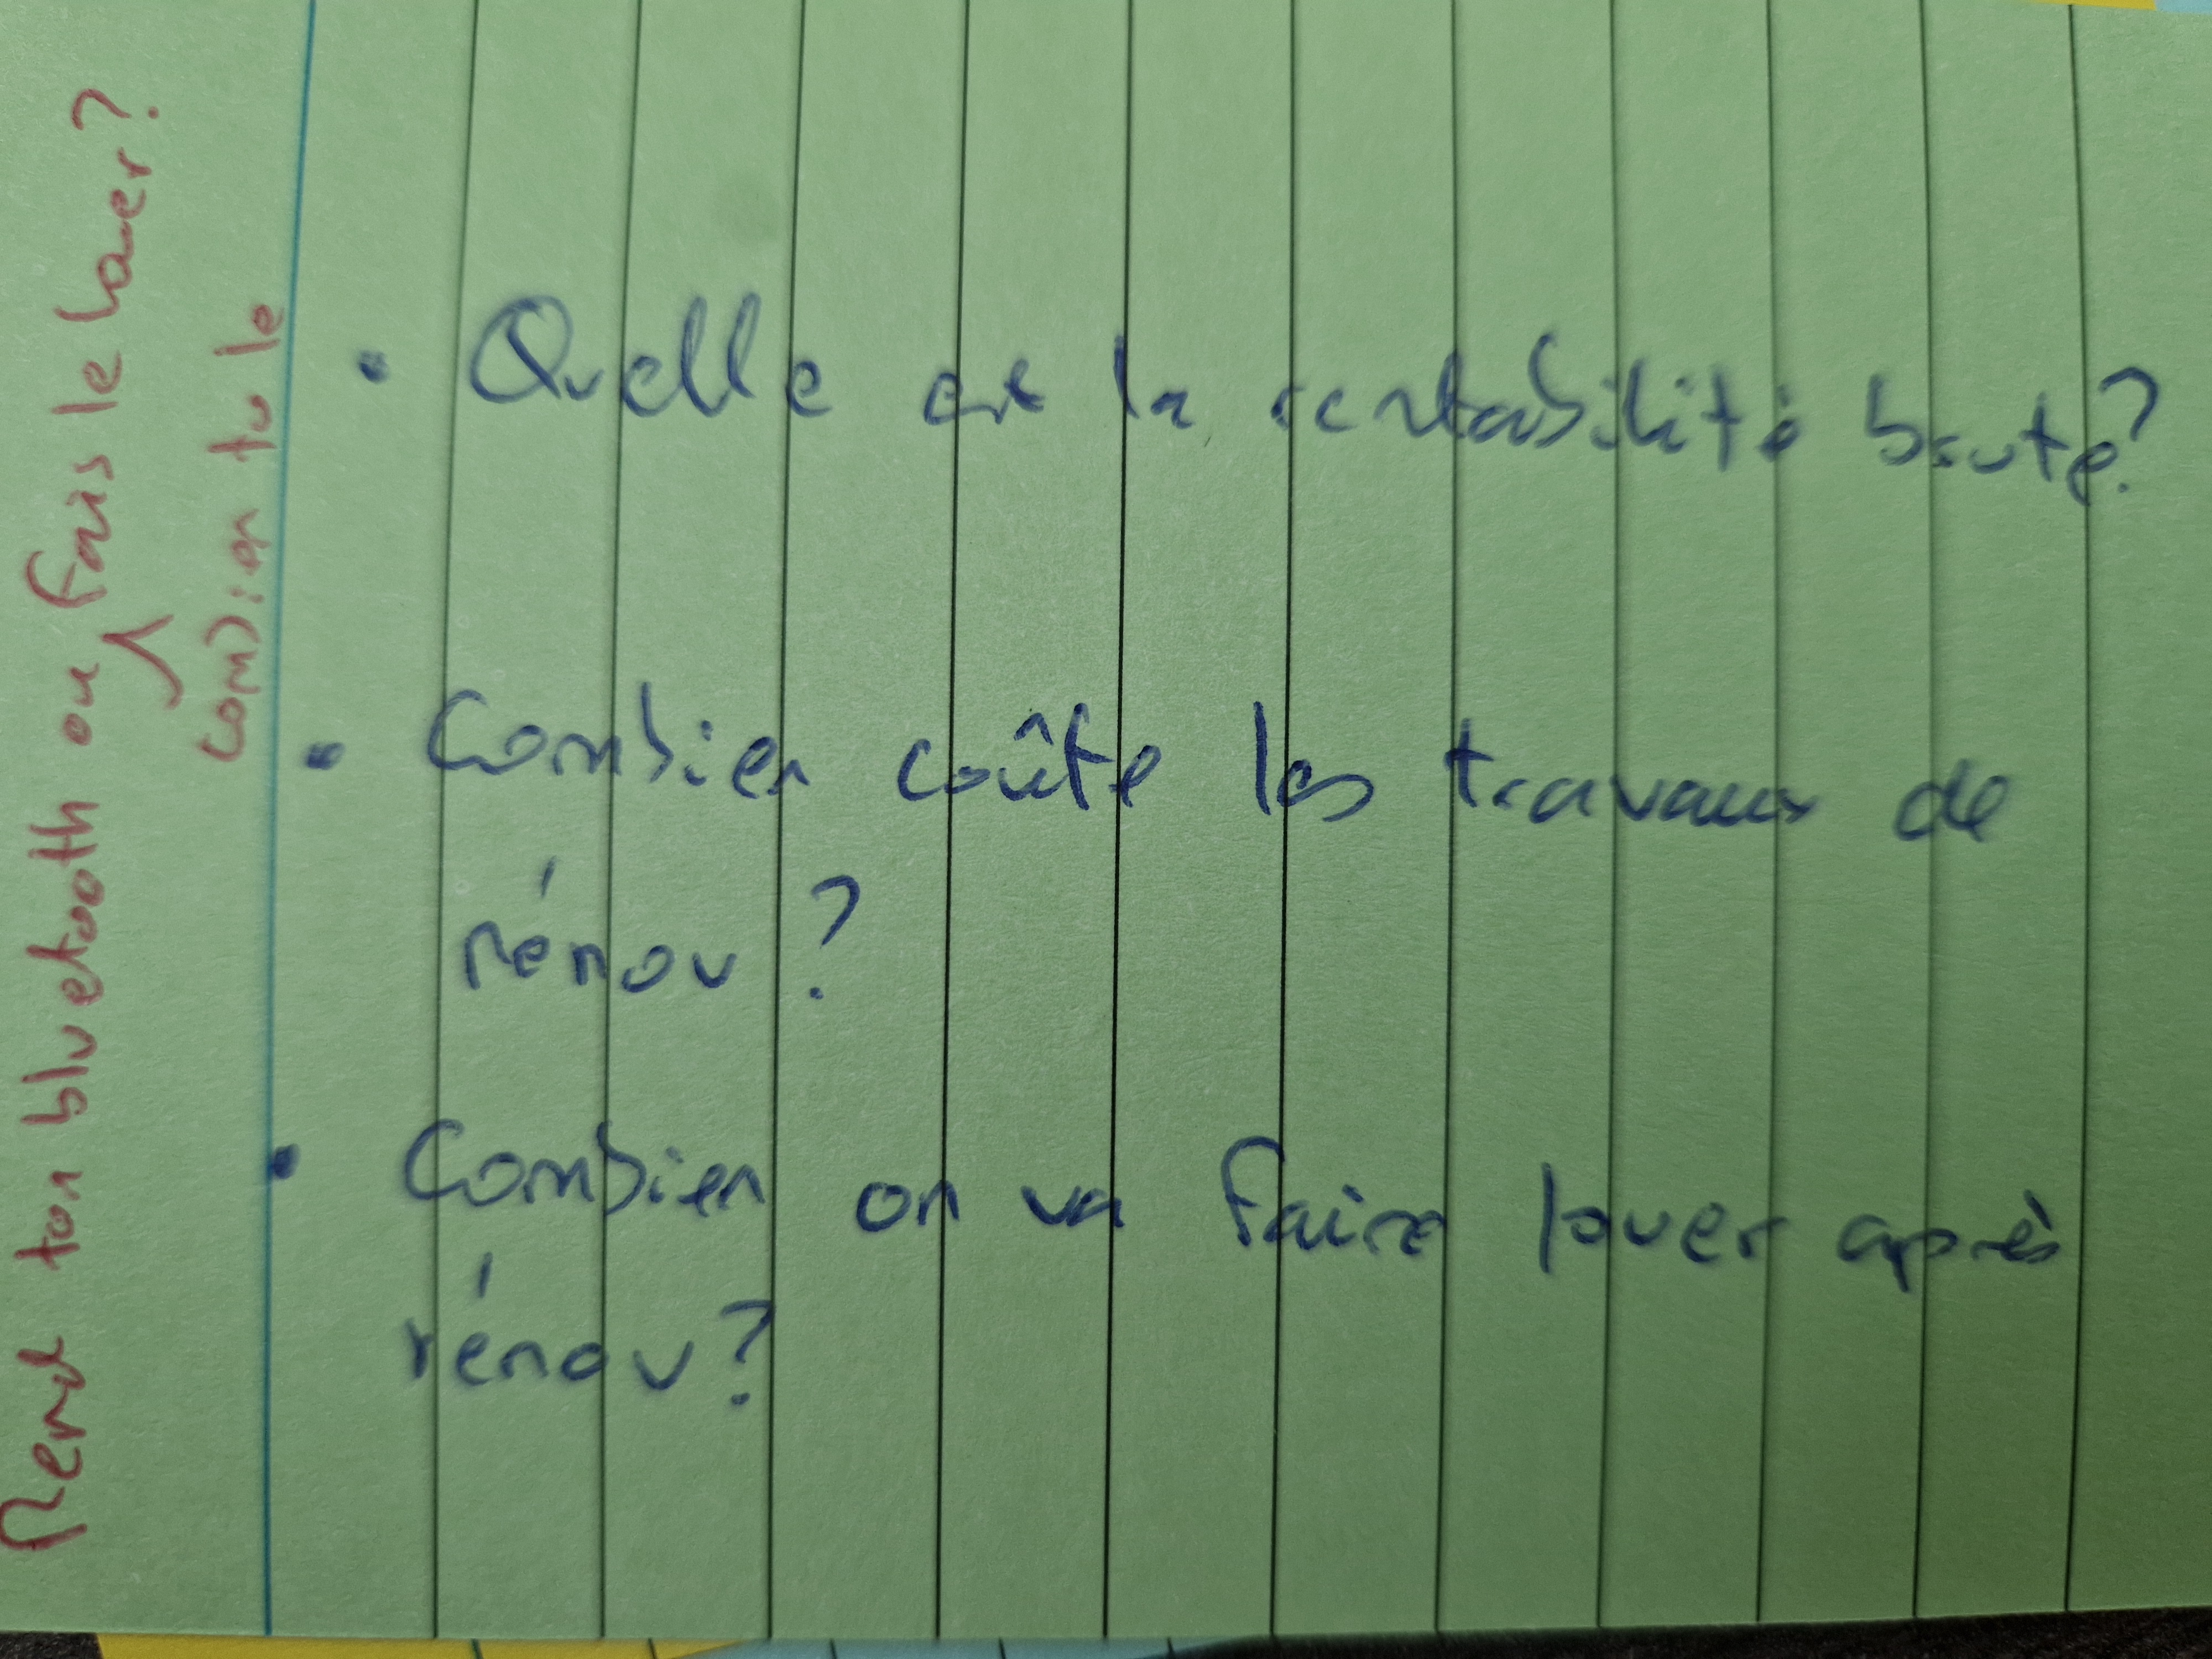 Prend ton bluetooth on fais le louer?
combien tu le
• Quelle est la rentabilité brute?
• Combien coûte les travaux de
rénov?
• Combien on va faire louer après
rénov?